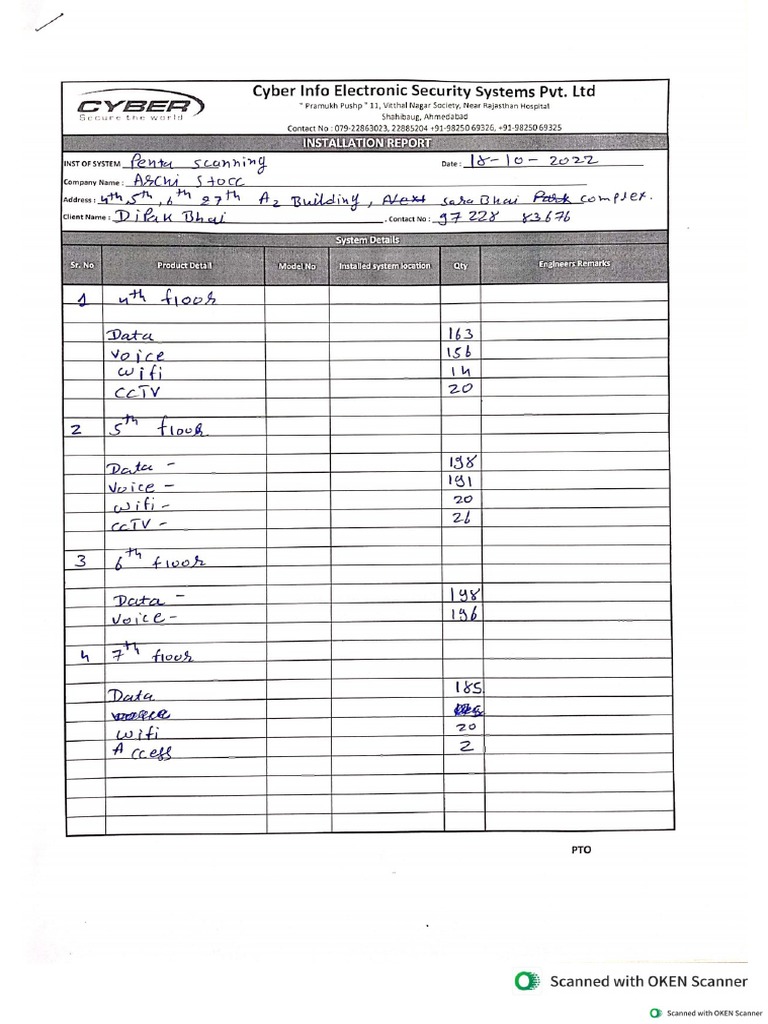 Cyber Info Electronic Security Systems Pvt. Ltd
CYBER
Secure the world
" Pramukh Pushp " 11, Vitthal Nagar Society, Near Rajasthan Hospital
Shahibaug, Ahmedabad
Contact No : 079-22863023, 22885204 +91-98250 69326, +91-98250 69325
INSTALLATION REPORT
INST OF SYSTEM Penta scanning Date : 18-10-2022
Company Name : Aschi Stocc
Address : 4th, 5th, 6th & 7th A2 Building, Next sara Bhai Park complex.
Client Name : Dipak Bhai . Contact No : 97228 83676
System Details
Sr. No Product Detail Model No Installed system location Qty Engineers Remarks
1 4th floor
Data 163
Voice 156
Wifi 14
CCTV 20
2 5th floor
Data - 198
Voice - 191
Wifi - 20
CCTV - 26
3 6th floor
Data - 198
Voice - 196
4 7th floor
Data 185
Wifi 20
Access 2
PTO
Scanned with OKEN Scanner
Scanned with OKEN Scanner